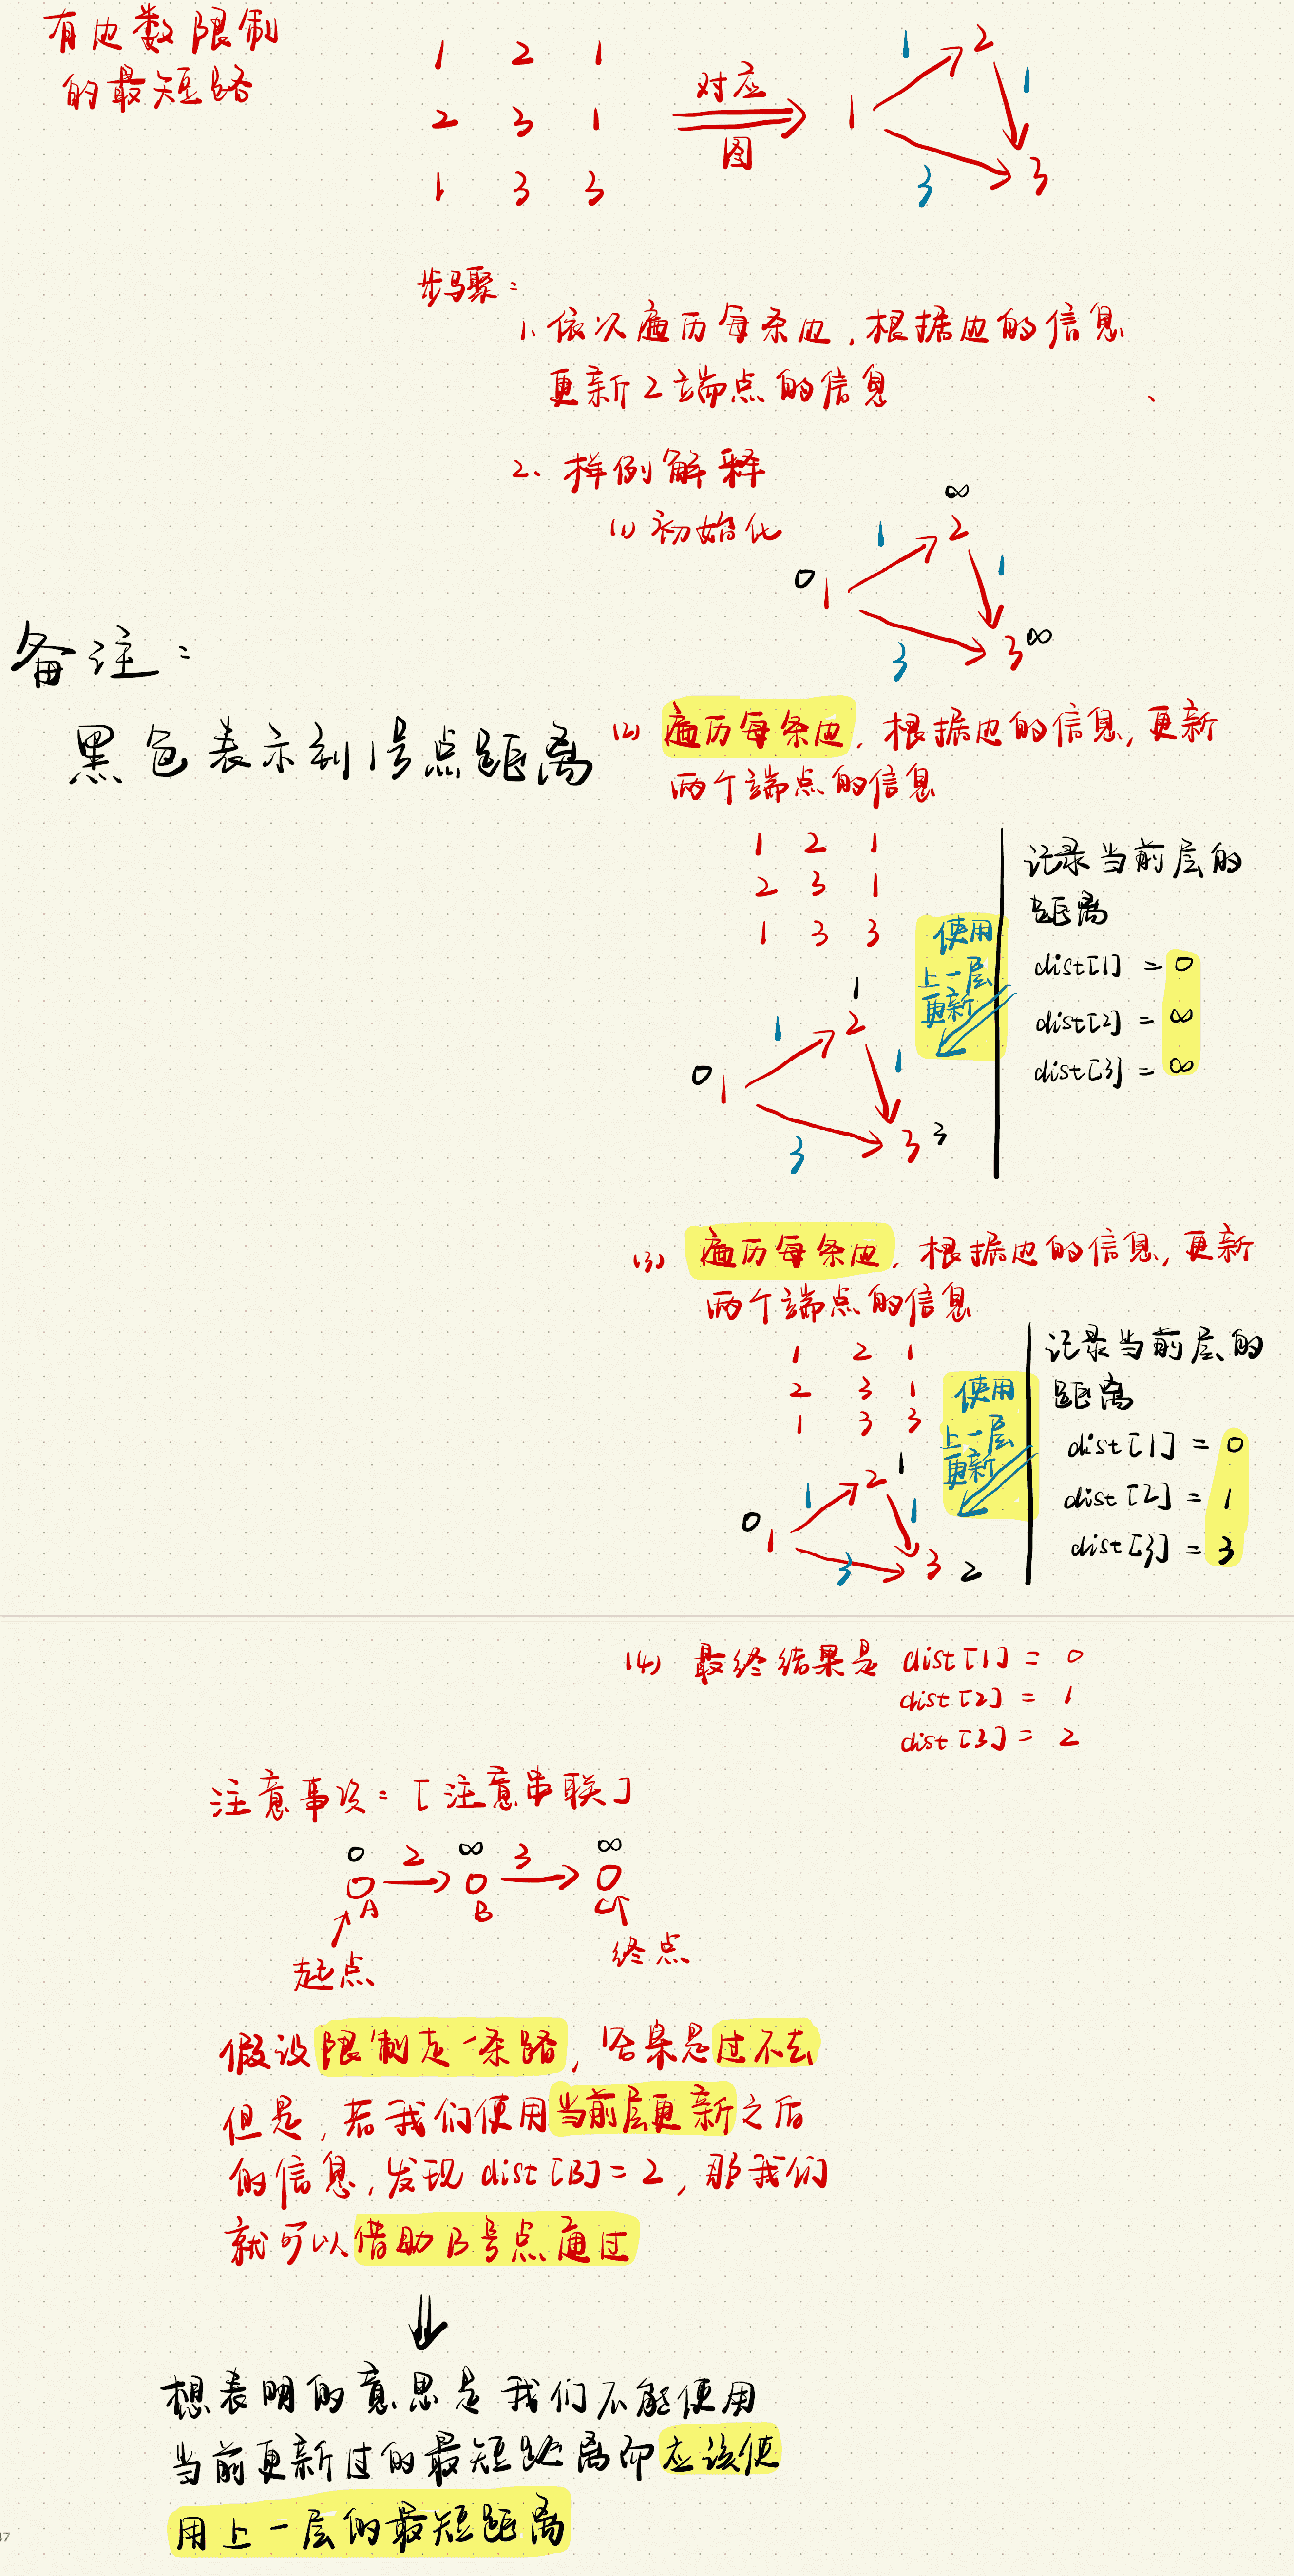 有边数限制
的最短路
1 2 1
2 3 1
1 3 3
对应
图
1 2 3
1
1
3
步骤：
1、依次遍历每条边，根据边的信息
更新2端点的信息
2、样例解释
(1) 初始化
0 1
∞ 2
3 ∞
1
1
3
备注：
黑色表示到1号点距离
(2) 遍历每条边，根据边的信息，更新
两个端点的信息
1 2 1
2 3 1
1 3 3
使用
上一层
更新
记录当前层的
距离
dist[1] = 0
dist[2] = ∞
dist[3] = ∞
0 1
1 2
3 3
1
1
3
(3) 遍历每条边，根据边的信息，更新
两个端点的信息
1 2 1
2 3 1
1 3 3
使用
上一层
更新
记录当前层的
距离
dist[1] = 0
dist[2] = 1
dist[3] = 3
0 1
2 1
3 2
1
1
3
(4) 最终结果是 dist[1] = 0
dist[2] = 1
dist[3] = 2
注意事项：[注意串联]
0 2 ∞ 3 ∞
A B C
起点
终点
假设限制走一条路，答案是过不去
但是，若我们使用当前层更新之后
的信息，发现dist[B]=2，那我们
就可以借助B号点通过
想表明的意思是我们不能使用
当前更新过的最短距离而应该使
用上一层的最短距离